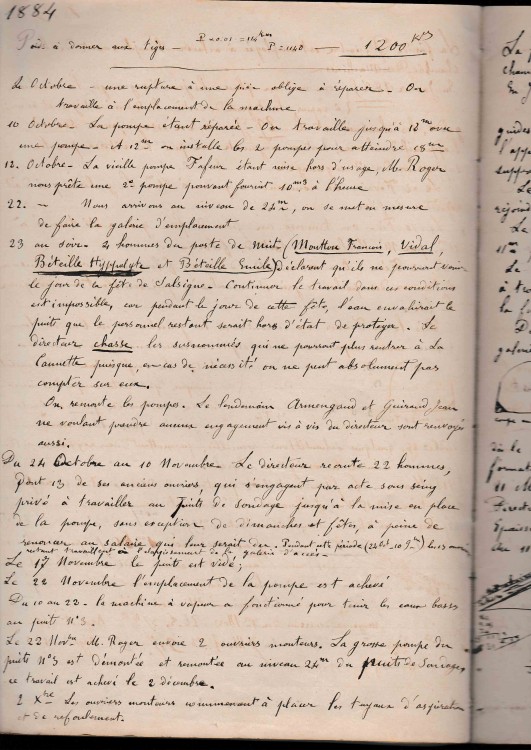 1884
P = 0.01 = 114
Poids à donner aux tiges — P = 1140 — 1200 K
Octobre — une rupture à une pièce oblige à réparer — On
travaille à l'emplacement de la machine
10 Octobre — La pompe étant réparée — On travaille jusqu'à 12m avec
une pompe — A 12m on installe les 2 pompes pour atteindre 18m
12. Octobre — La vieille pompe Fafeur étant mise hors d'usage, M. Roger
nous prête une 2e pompe pouvant fournir 10m3 à l'heure
22. — Nous arrivons au niveau de 24m, on se met en mesure
de faire la galerie d'emplacement
23 au soir — 4 hommes du poste de nuit (Mouttou François, Vidal,
Béteille Hyppolyte et Béteille Emile) déclarent qu'ils ne pourront venir
le jour de la fête de Salsigne — Continuer le travail dans ces conditions
est impossible, car pendant le jour de cette fête, l'eau envahirait le
puits que le personnel restant serait hors d'état de protéger. Le
directeur chasse les susnommés qui ne pourront plus rentrer à La
Caunette puisque, en cas de nécessité on ne peut absolument pas
compter sur eux.
On remonte les pompes. Le lendemain Armengaud et Guiraud Jean
ne voulant prendre aucun engagement vis à vis du directeur sont renvoyés
aussi.
Du 24 Octobre au 10 Novembre — Le directeur recrute 22 hommes,
dont 13 de ses anciens ouvriers, qui s'engagent par acte sous seing
privé à travailler au puits de sondage jusqu'à la mise en place
de la pompe, sans exception de dimanches et fêtes, à peine de
renoncer au salaire qui leur serait dû. Pendant cette période (24 - 10 9bre) les 13
travaillent à l'élargissement de la galerie d'accès.
Le 17 Novembre le puits est vidé;
Le 22 Novembre l'emplacement de la pompe est achevé
Du 10 au 22 — la machine à vapeur a fonctionné pour tenir les eaux basses
au puits N° 3.
Le 22 Novbre M. Roger envoie 2 ouvriers monteurs. La grosse pompe du
puits N° 3 est démontée et remontée au niveau 24m du puits de Sondage,
ce travail est achevé le 2 décembre.
2 Xbre Les ouvriers monteurs commencent à placer les tuyaux d'aspiration
et de refoulement.